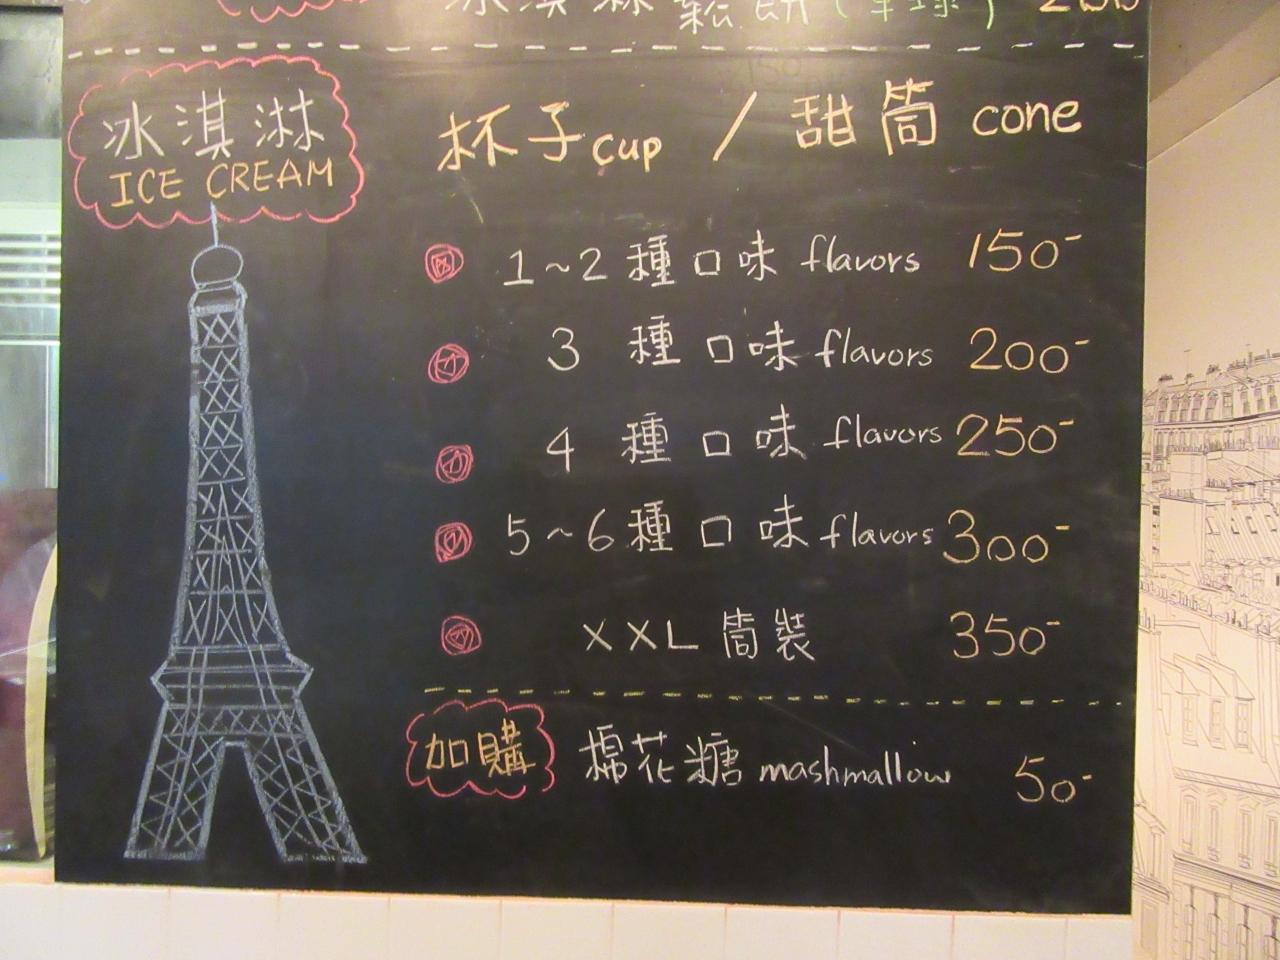 冰淇淋 鬆餅 (單球) 200
冰淇淋
ICE CREAM
杯子 cup / 甜筒 cone
1~2 種口味 flavors 150-
3 種口味 flavors 200-
4 種口味 flavors 250-
5~6 種口味 flavors 300-
XXL 筒裝 350-
加購 棉花糖 mashmallow 50-